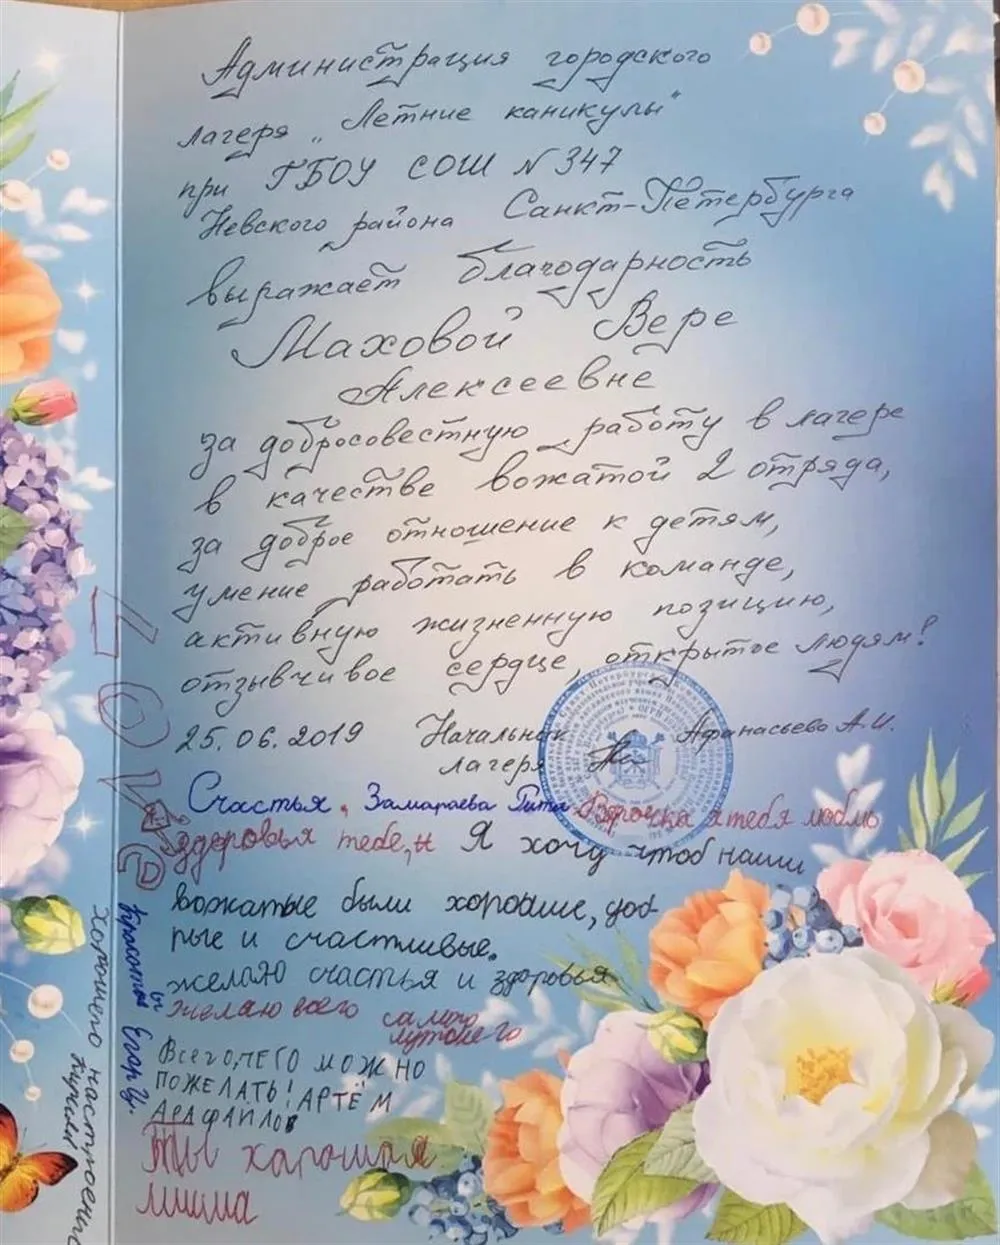 Администрация городского
лагеря „Летние каникулы"
при ГБОУ СОШ N 347
Невского района Санкт-Петербурга
выражает благодарность
Маховой Вере
Алексеевне
за добросовестную работу в лагере
в качестве вожатой 2 отряда,
за доброе отношение к детям,
умение работать в команде,
активную жизненную позицию,
отзывчивое сердце, открытое людям!
25.06.2019 Начальник Афанасьева А.И.
лагеря
Счастья, Замараева Рита Верочка я тебя люблю
здоровья тебе, и Я хочу чтоб наши
вожатые были хорошие, доб-
рые и счастливые.
желаю счастья и здоровья
Желаю всего самого
лутшего
Всего, чего можно
ПОЖЕЛАТЬ! АРТЁМ
Ты харошая
Миша
LOVE
Красоты Егор Ц.
хорошего настроения
Кирилл